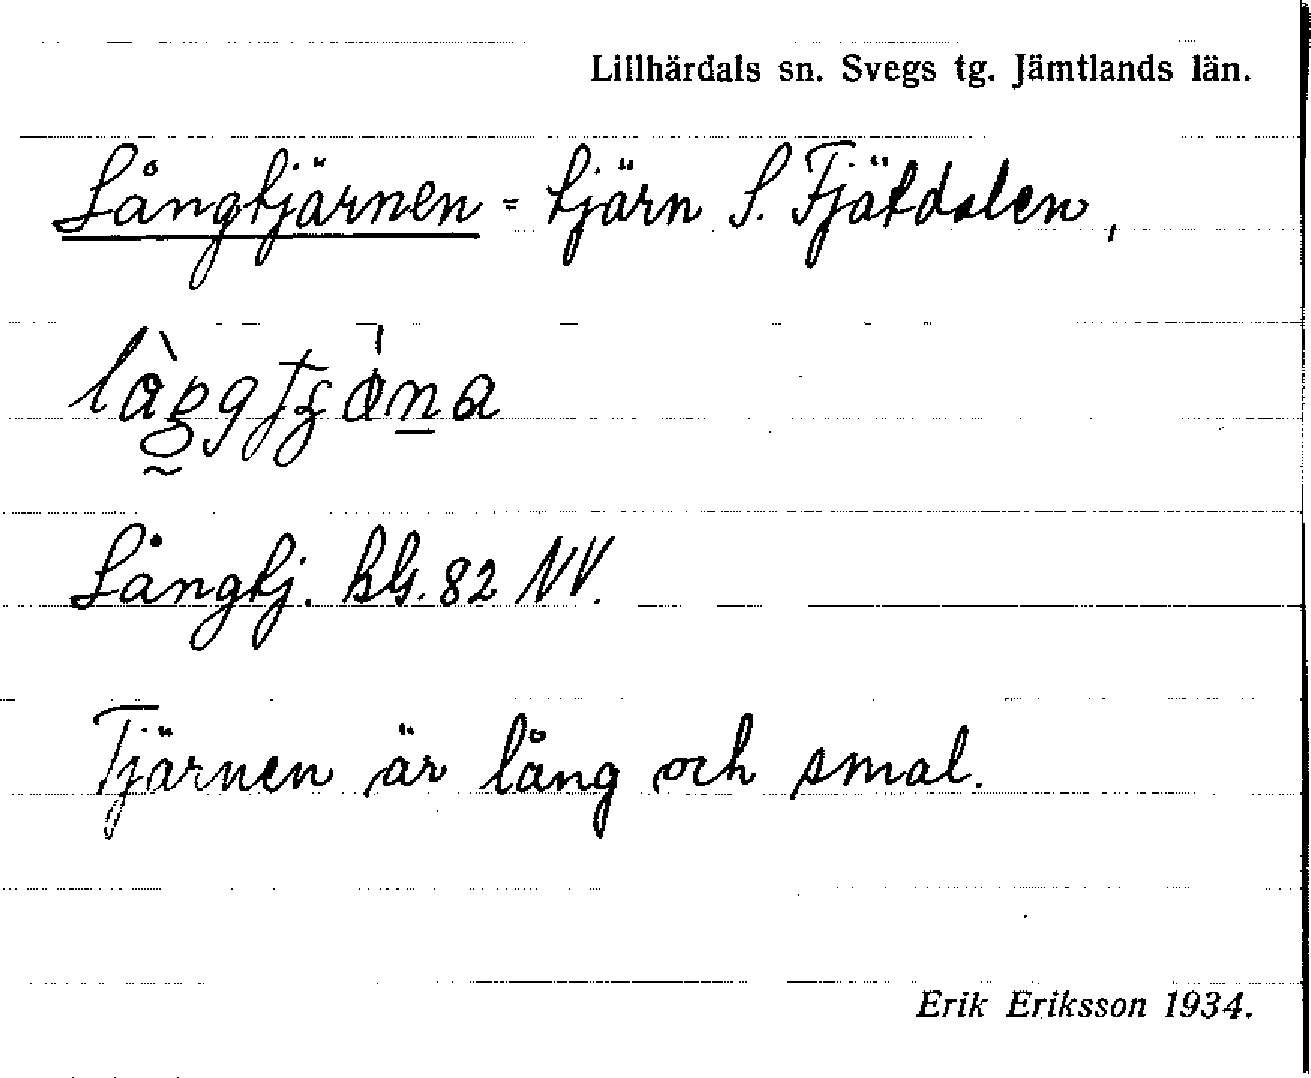 Lillhärdals sn. Svegs tg. Jämtlands län.
Långtjärnen = tjärn S. Fjätdalen,
Långtj. kbl. 82 NV.
Tjärnen är lång och smal.
Erik Eriksson 1934.